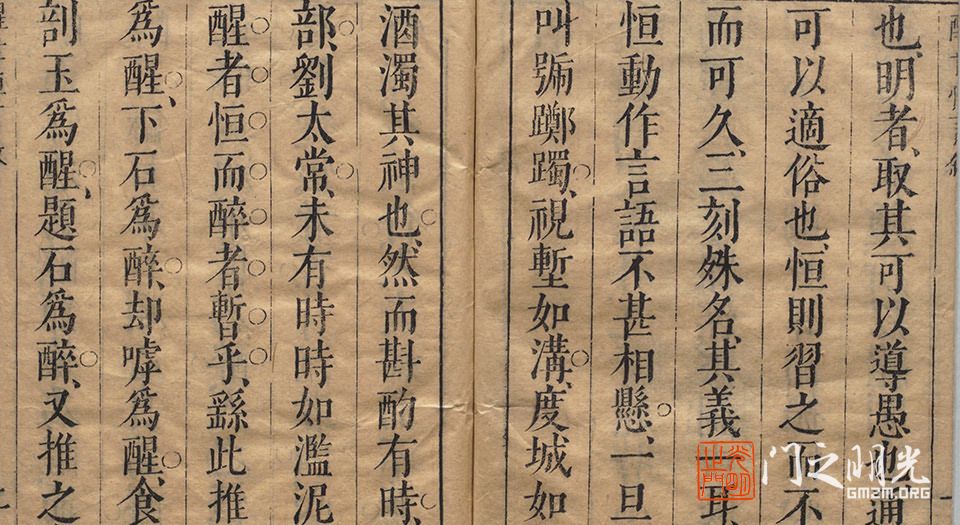 也、明者、取其可以導愚也、通
可以適俗也、恒則習之而不
而可久、三刻殊名、其義一耳、
恒動作言語不甚相懸、一旦
叫號躑躅、視塹如溝、度城如
酒濁其神也、然而斟酌有時、
部、劉太常、未有時時如濫泥
醒者恒而醉者暫乎、繇此推
為醒、下石為醉、却嘑為醒、食
剖玉為醒、題石為醉、又推之
门之明光
GMZM.ORG